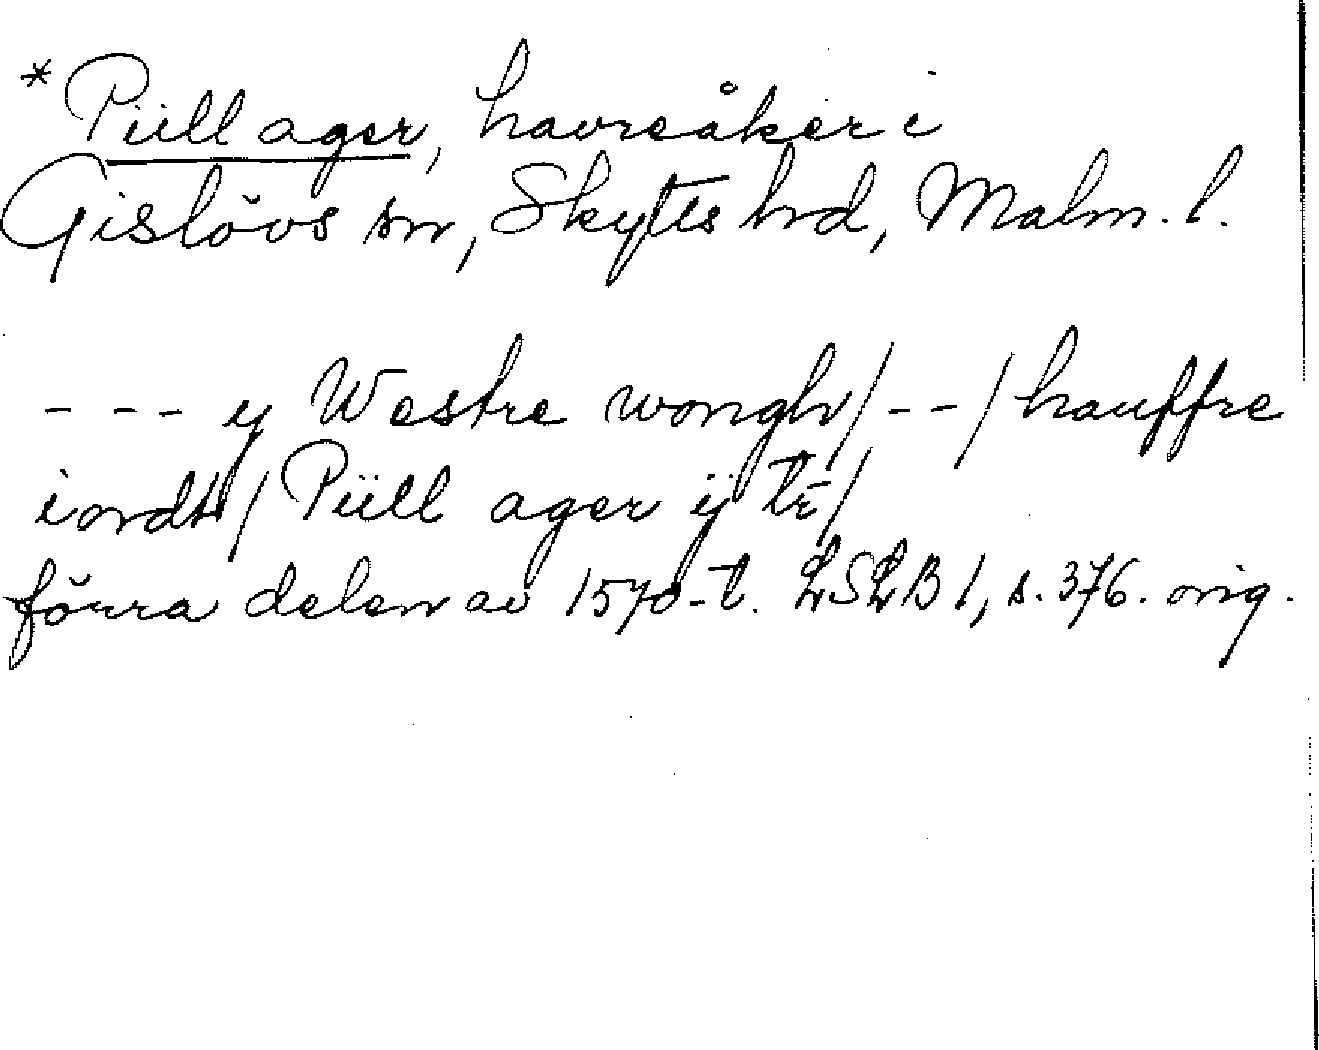 * Püll ager, havreåker i
Gislövs sn, Skytts hrd, Malm. l.
- - - y Westre wongh/ - - / hauffre
iordt/ Püll ager ÿ
förra delen av 1570-t. LSLB 1, s. 376. orig.